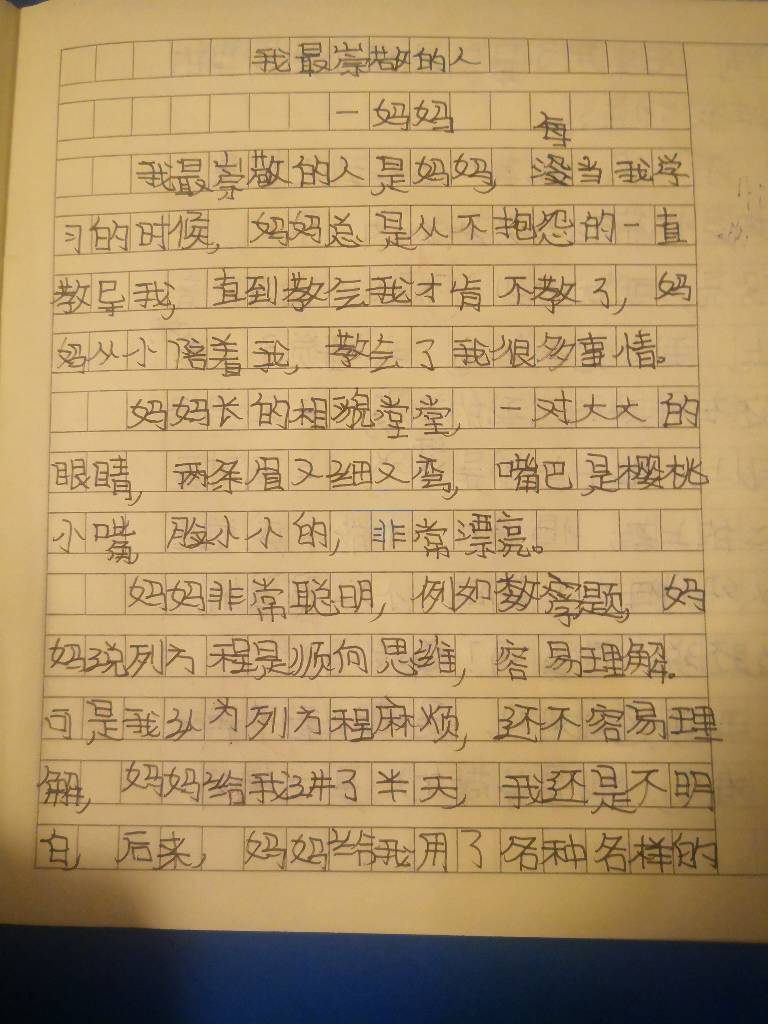 我最崇敬的人
一妈妈
我最崇敬的人是妈妈,每当我学
习的时候,妈妈总是从不抱怨的一直
教导我,直到教会我才肯不教了,妈
妈从小陪着我,教会了我很多事情。
妈妈长的相貌堂堂,一对大大的
眼睛,两条眉又细又弯,嘴巴是樱桃
小嘴,脸小小的,非常漂亮。
妈妈非常聪明,例如数学题,妈
妈说列方程是顺向思维,容易理解.
可是我认为列方程麻烦,还不容易理
解,妈妈给我讲了半天,我还是不明
白,后来,妈妈给我用了各种各样的